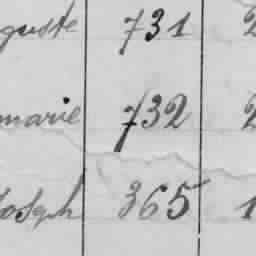 guste 731 2
marie 732 2
Joseph 365 1